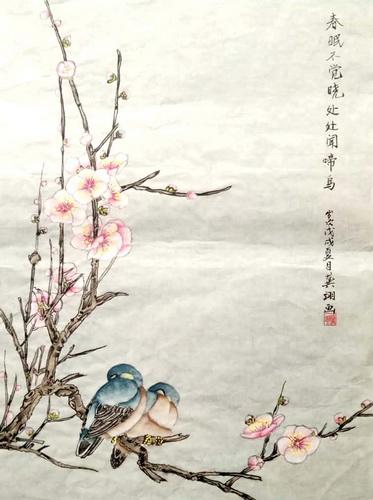 春眠不觉晓处处闻啼鸟
岁次戊戌夏月英翊画